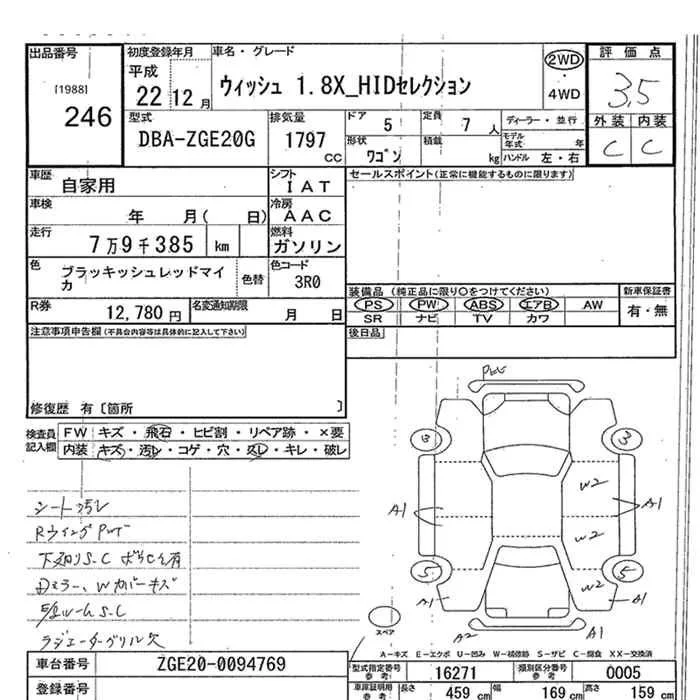 出品番号
[1988]
246
初度登録年月
平成
22 12 月
車名・グレード
ウィッシュ 1.8X_HIDセレクション
2WD
・
4WD
評価点
3.5
外装 内装
C C
型式
DBA-ZGE20G
排気量
1797
CC
ドア
5
定員
7 人
形状
ワゴン
積載
kg
ディーラー・並行
モデル年式 年
ハンドル 左・右
車歴
自家用
シフト
IAT
セールスポイント(正常に機能するものに限ります)
車検
年 月( 日)
冷房
AAC
走行
7万9千385 km
燃料
ガソリン
色
ブラッキッシュレッドマイカ
色替
色コード
3R0
装備品 (純正品に限り○をつけてください)
PS PW ABS エアB AW
SR ナビ TV カワ
新車保証書
有・無
R券
12,780 円
名変通知期限
月 日
後日品
注意事項申告欄(不具合内容等は具体的に記入して下さい)
修復歴 有〔箇所 〕
検査員
記入欄
FW キズ・飛石・ヒビ割・リペア跡・×要
内装 キズ・汚レ・コゲ・穴・スレ・キレ・破レ
シート汚レ
下廻りS.C
Dミラー、Wカバーキズ
S.C
ラジエーターグリル欠
3 3
A1 A1
W2
W2
W2
5 5
A1 A1
A2 A1
スペア
A-キズ E-エクボ U-凹み W-補修跡 S-サビ C-腐食 XX-交換済
車台番号
ZGE20-0094769
登録番号
型式指定番号
参考
16271
類別区分番号
参考
0005
車庫証明用
参考
長さ 459 cm
幅 169 cm
高さ 159 cm